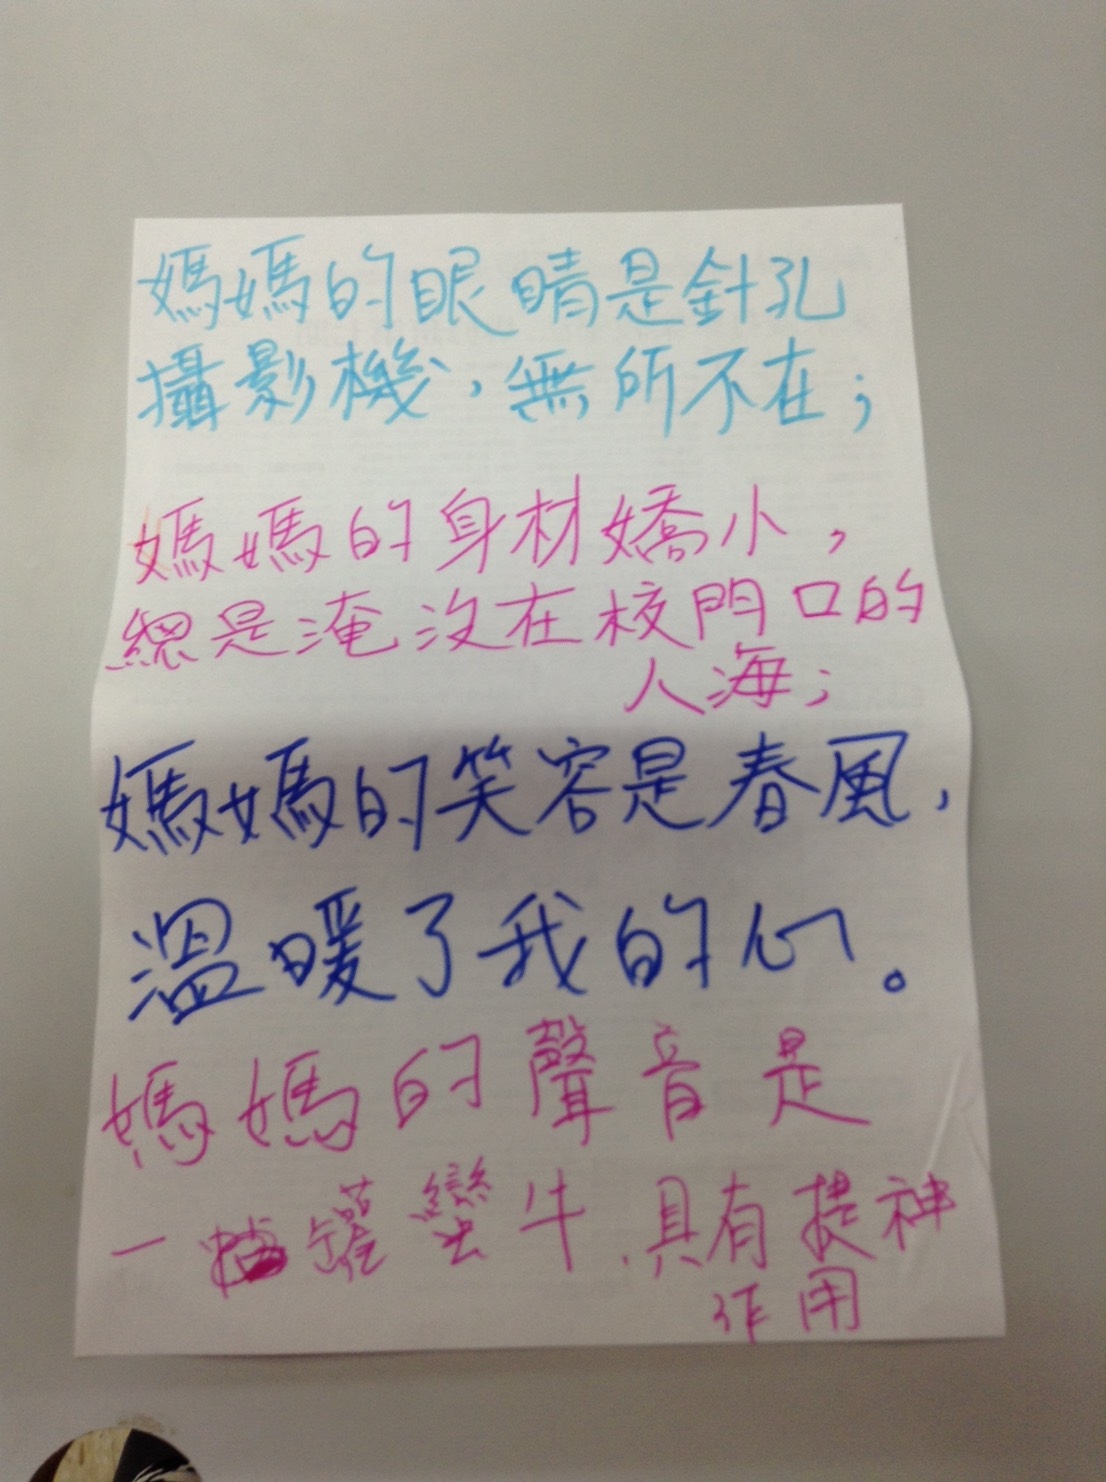 媽媽的眼睛是針孔
攝影機，無所不在；
媽媽的身材嬌小，
總是淹沒在校門口的
人海；
媽媽的笑容是春風，
溫暖了我的心。
媽媽的聲音是
一罐蠻牛，具有提神
作用